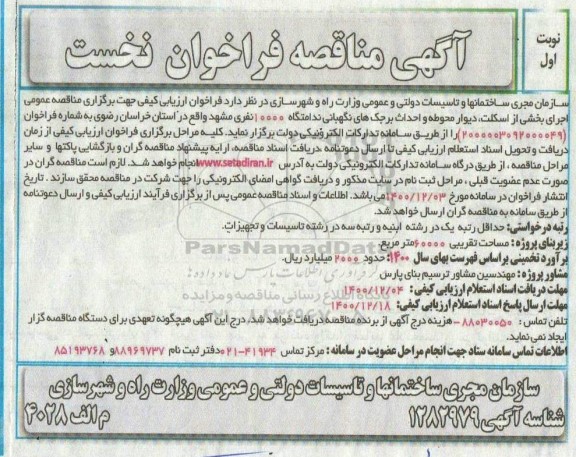 نوبت
اول
آگهی مناقصه فراخوان نخست
سازمان مجری ساختمانها و تاسیسات دولتی و عمومی وزارت راه و شهرسازی در نظر دارد فراخوان ارزیابی کیفی جهت برگزاری مناقصه عمومی
اجرای بخشی از اسکلت، دیوار محوطه و احداث برجک های نگهبانی ندامتگاه ۱۰۰۰۰ نفری مشهد واقع در استان خراسان رضوی به شماره فراخوان
(۲۰۰۰۰۰۳۰۹۲۰۰۰۰۴۹) را از طریق سامانه تدارکات الکترونیکی دولت برگزار نماید. کلیه مراحل برگزاری فراخوان ارزیابی کیفی از زمان
دریافت و تحویل اسناد استعلام ارزیابی کیفی تا ارسال دعوتنامه، دریافت اسناد مناقصه، ارایه پیشنهاد مناقصه گران و بازگشایی پاکتها و سایر
مراحل مناقصه، از طریق درگاه سامانه تدارکات الکترونیکی دولت به آدرس www.setadiran.ir انجام خواهد شد. لازم است مناقصه گران در
صورت عدم عضویت قبلی، مراحل ثبت نام در سایت مذکور و دریافت گواهی امضای الکترونیکی را جهت شرکت در مناقصه محقق سازند. تاریخ
انتشار فراخوان در سامانه مورخ ۱۴۰۰/۱۲/۰۳ می باشد. اطلاعات و اسناد مناقصه عمومی پس از برگزاری فرآیند ارزیابی کیفی و ارسال دعوتنامه
از طریق سامانه به مناقصه گران ارسال خواهد شد.
رتبه درخواستی: حداقل رتبه یک در رشته ابنیه و رتبه سه در رشته تاسیسات و تجهیزات.
زیربنای پروژه: مساحت تقریبی ۶۰۰۰۰ متر مربع
برآورد تخمینی بر اساس فهرست بهای سال ۱۴۰۰: حدود ۲۰۰۰ میلیارد ریال.
مشاور پروژه: مهندسین مشاور ترسیم بنای پارس
مهلت دریافت اسناد استعلام ارزیابی کیفی: ۱۴۰۰/۱۲/۰۴
مهلت ارسال پاسخ اسناد استعلام ارزیابی کیفی: ۱۴۰۰/۱۲/۱۸
تلفن تماس: ۸۸۰۳۰۰۵۰ -هزینه درج آگهی از برنده مناقصه دریافت خواهد شد. درج این آگهی هیچگونه تعهدی برای دستگاه مناقصه گزار
ایجاد نمی نماید.
اطلاعات تماس سامانه ستاد جهت انجام مراحل عضویت در سامانه: مرکز تماس ۴۱۹۳۴-۰۲۱ دفتر ثبت نام ۸۸۹۶۹۷۳۷ و ۸۵۱۹۳۷۶۸
سازمان مجری ساختمانها و تاسیسات دولتی و عمومی وزارت راه و شهرسازی
شناسه آگهی ۱۲۸۲۹۷۹ م الف ۴۰۲۸
ParsNamadData
پایگاه اطلاع رسانی مناقصه و مزایده